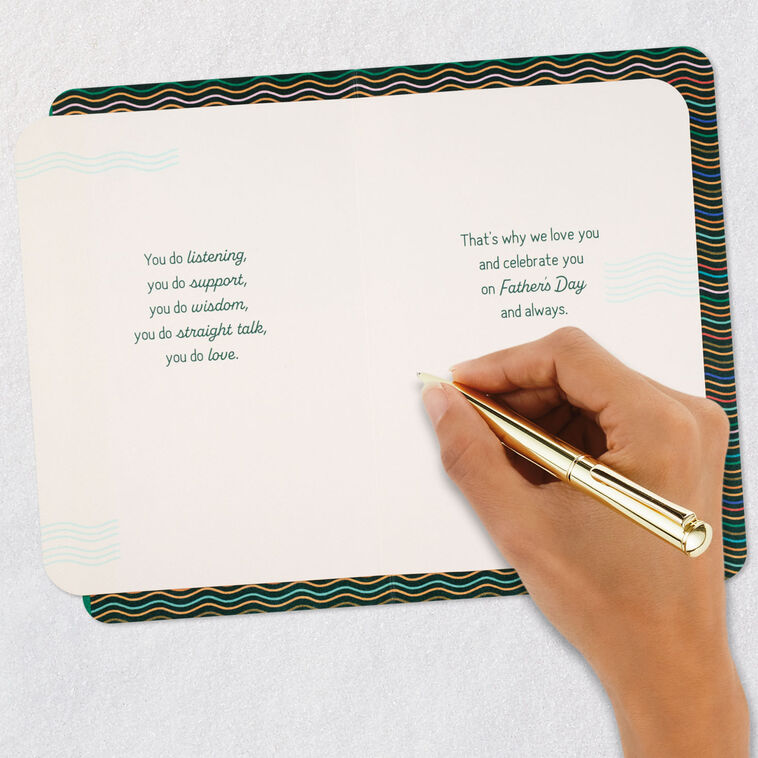 You do listening,
you do support,
you do wisdom,
you do straight talk,
you do love.
That's why we love you
and celebrate you
on Father's Day
and always.